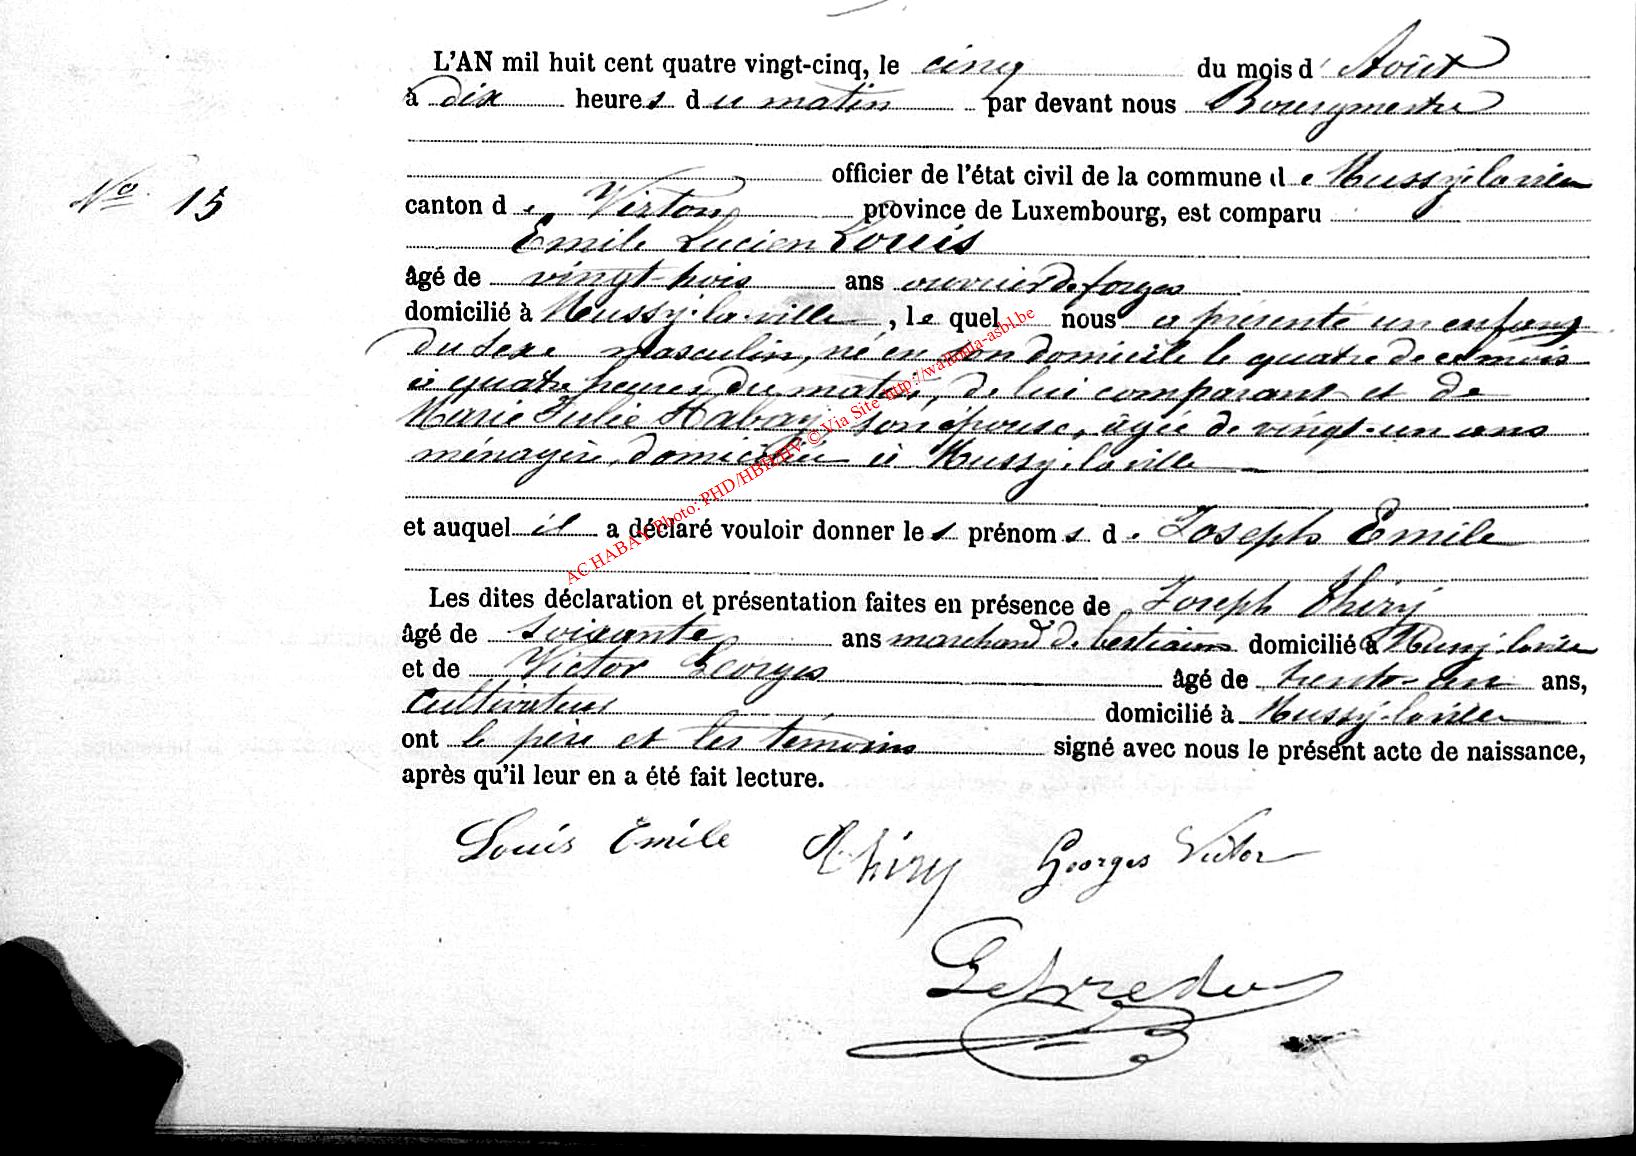 L'AN mil huit cent quatre vingt-cinq, le cinq du mois d' Août
à dix heures du matin par devant nous Bourgmestre
officier de l'état civil de la commune de Mussy-la-ville
Nº 15
canton de Virton province de Luxembourg, est comparu
Emile Lucien Louis
âgé de vingt-trois ans ouvrier de forges
domicilié à Mussy-la-ville, le quel nous a présenté un enfant
du sexe masculin, né en son domicile le quatre de ce mois
à quatre heures du matin, de lui comparant et de
Marie Julie Habay son épouse, âgée de vingt-un ans
ménagère, domiciliée à Mussy-la-ville
et auquel il a déclaré vouloir donner les prénoms de Joseph Emile
Les dites déclaration et présentation faites en présence de Joseph Thiry
âgé de soixante ans marchand de bestiaux domicilié à Mussy-la-ville
et de Victor Georges âgé de trente-un ans,
cultivateur domicilié à Mussy-la-ville
ont le père et les témoins signé avec nous le présent acte de naissance,
après qu'il leur en a été fait lecture.
Louis Emile Thiry Georges Victor
AC HABAY Photo: PHD/HBH/HV © Via Site http://wallonia-asbl.be